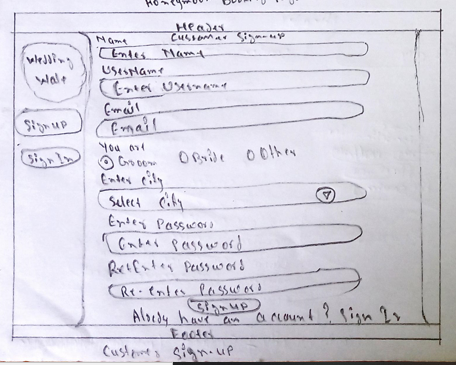 Header
Customer Sign-up
Name
Enter Name
UserName
Enter Username
Email
Email
You are
Groom Bride Other
Enter City
Select City
Enter Password
Enter Password
Re-Enter Password
Re-enter Password
Sign up
Already have an account? Sign In
Wedding
Wale
Sign up
Sign In
Footer
Customer Sign-up